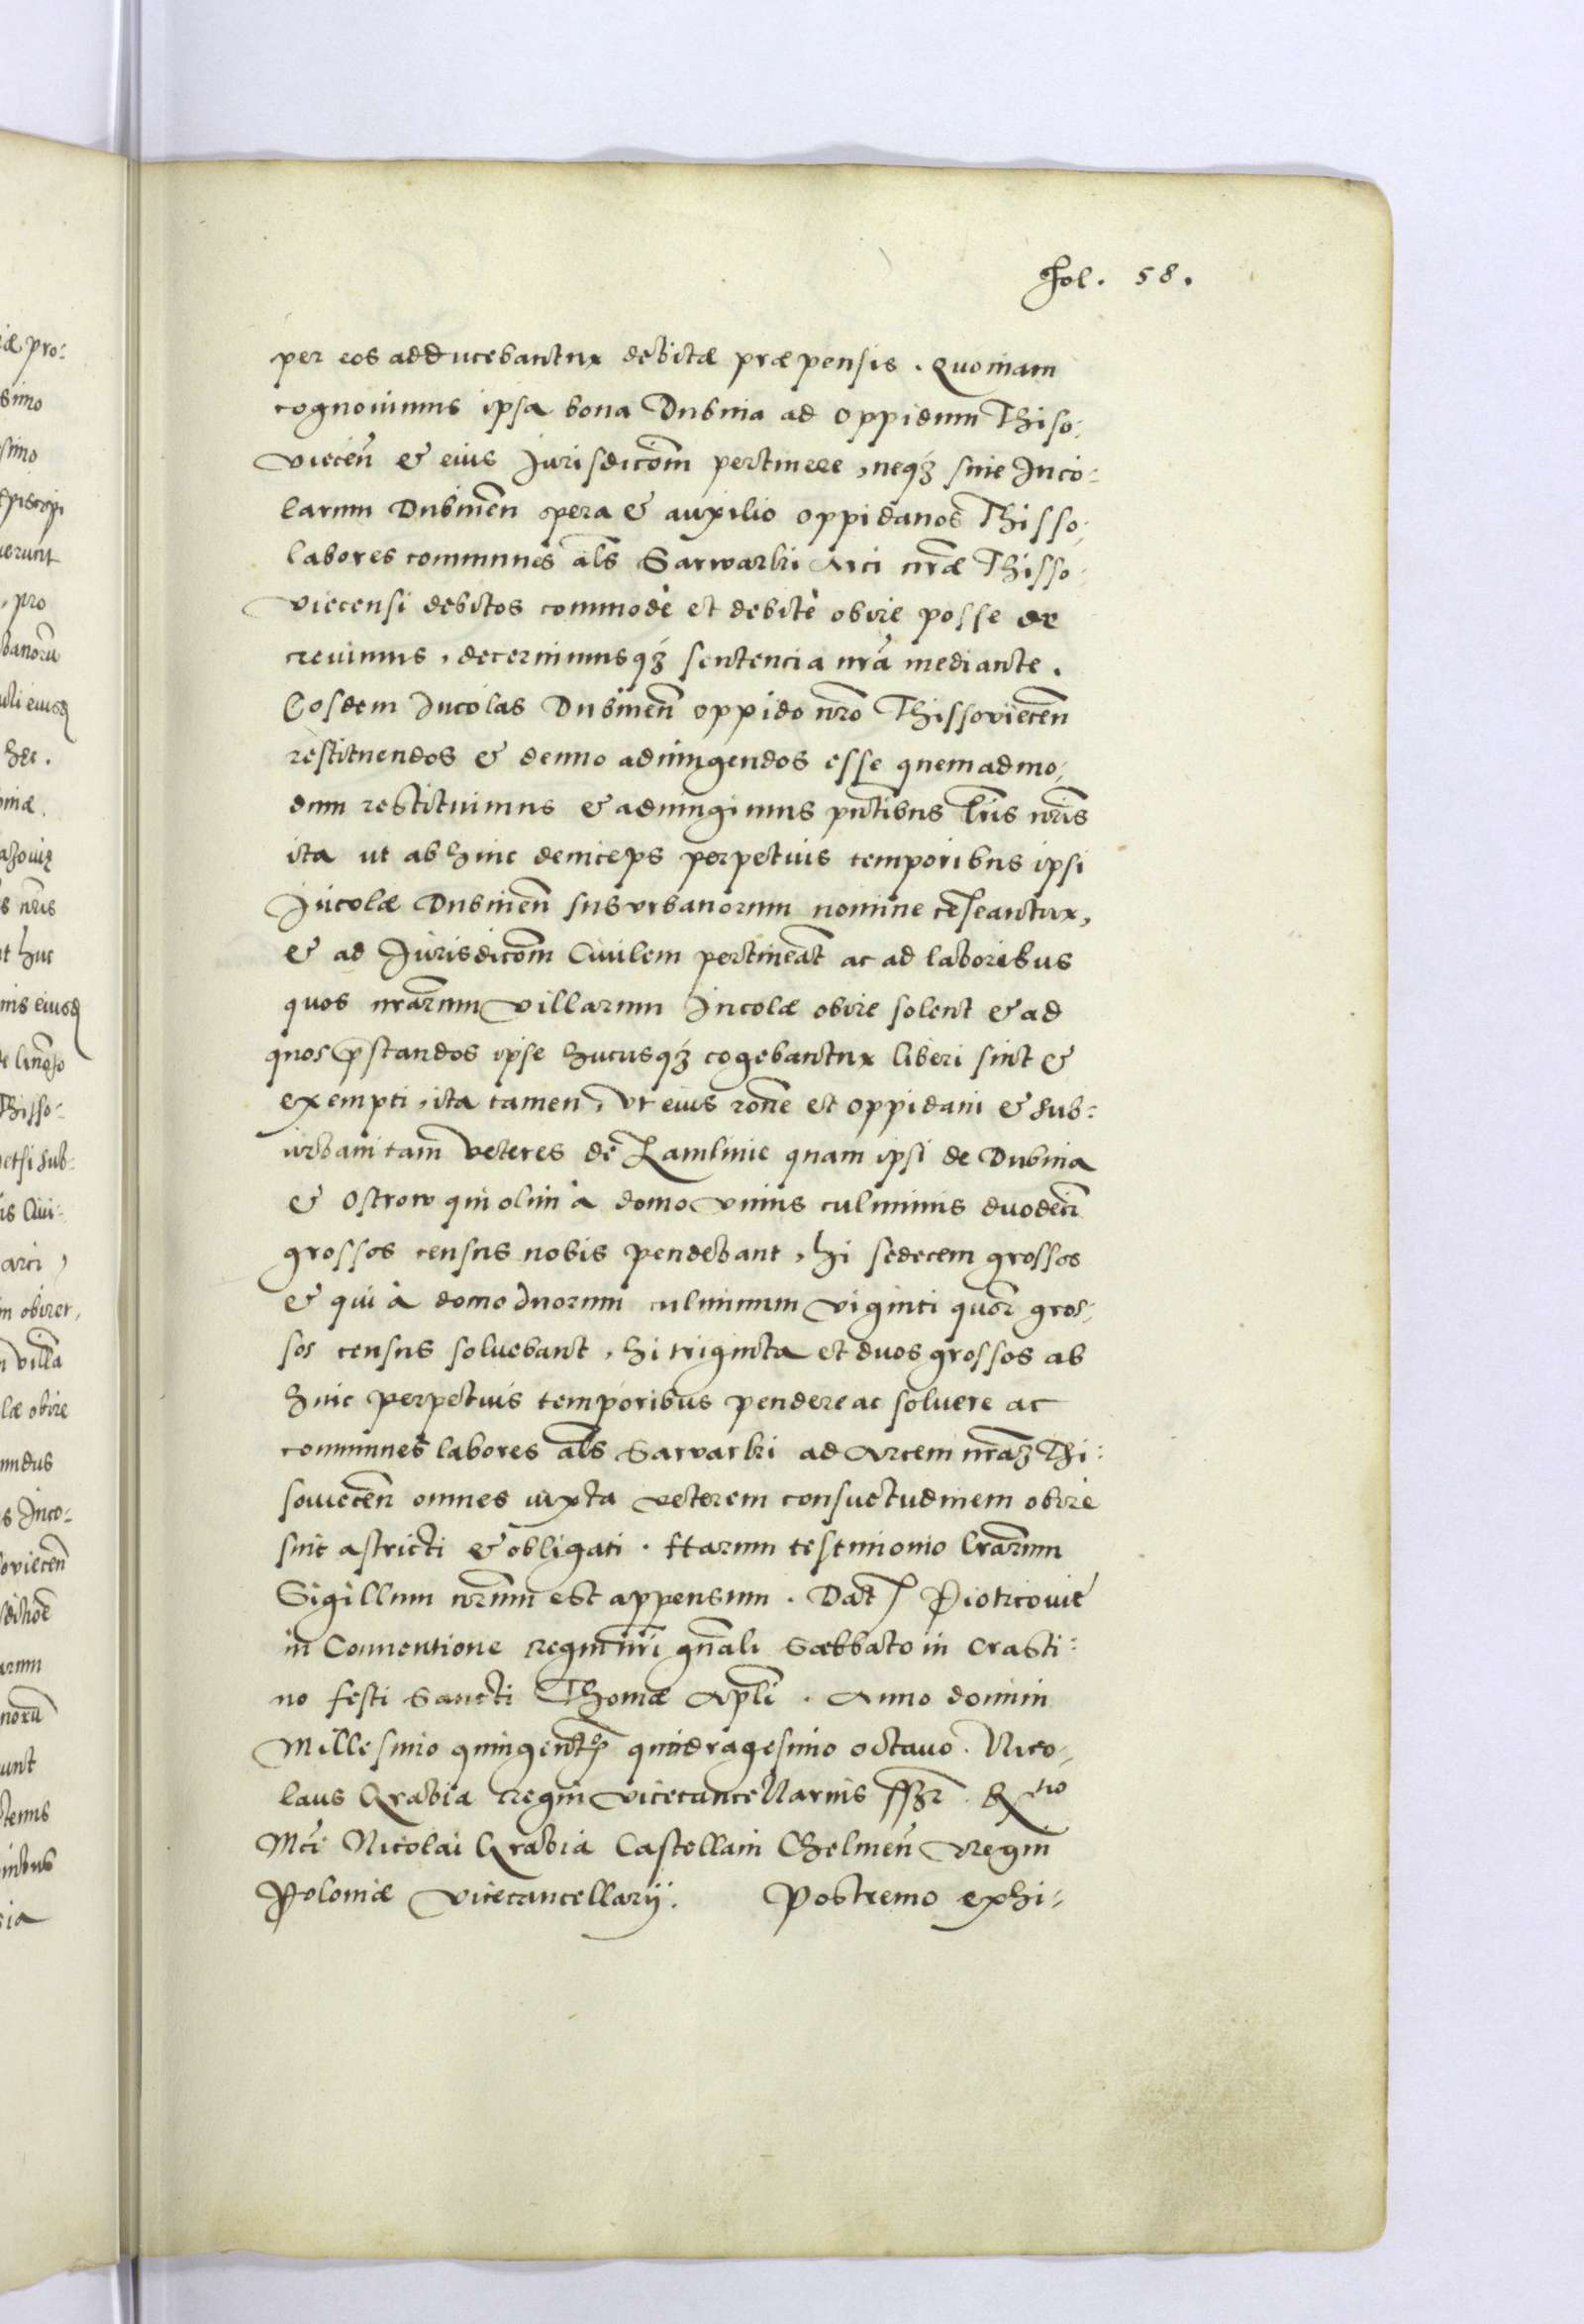 Fol. 58.
per eos adducebantur debitæ præpensis. Quoniam
cognouimus ipsa bona Dubnia ad oppidum Thiso-
viecen̄ & eius Jurisdicōm pertinere, neqꝫ sine Inco-
larum Dubnien̄ opera & auxilio oppidanos Thisso-
labores communes als̄ Sarwarki Arci nr̄æ Thisso-
viecensi debitos commodè et debitè obire posse de
creuimus, decernimusqꝫ sentencia nrā mediante.
Eosdem Incolas Dubnien̄ oppido nr̄o Thissoviecen̄
restituendos & denuo adiungendos esse quemadmo-
dum restituimus & adiungimus pn̄tibus lr̄is nr̄is
ita ut abhinc deinceps perpetuis temporibus ipsi
Incolæ Dubnien̄ suburbanorum nomine cēseantur,
& ad Jurisdicōm Ciuilem pertineāt ac ad laboribus
quos nr̄arum villarum Incolæ obire solent & ad
quos p̄standos ipse hucusqꝫ cogebantur liberi sint &
exempti, ita tamen, vt eius rōne et oppidani & sub-
urbani tam veteres de Zamlinie quam ipsi de Dubnia
& Ostrow qui olim à domo vnius culminis duodeci
grossos census nobis pendebant, hi sedecem grossos
& qui à domo duorum culminum viginti quor̄ gros-
sos census soluebant, hi triginta et duos grossos ab
hinc perpetuis temporibus pendere ac soluere ac
communes labores als̄ Sarvarki ad Arcem nr̄aꝫ Thi-
souiecen̄ omnes iuxta veterem consuetudinem obire
sint astricti & obligati. Harum testimonio lr̄arum
Sigillum nr̄um est appensum. Dat̄ Piotrcouie
in Conuentione regni nr̄i gn̄ali Sabbato in Crasti-
no festi Sancti Thomæ Apl̄i. Anno domini
Millesimo quingentꝭ quadragesimo octauo. Nico-
laus Grabia regni vicecancellarius sszr̄. Rtio
Mci Nicolai Grabia Castellani Chelmen̄ Regni
Poloniæ Vicecancellarij. Postremo exhi-